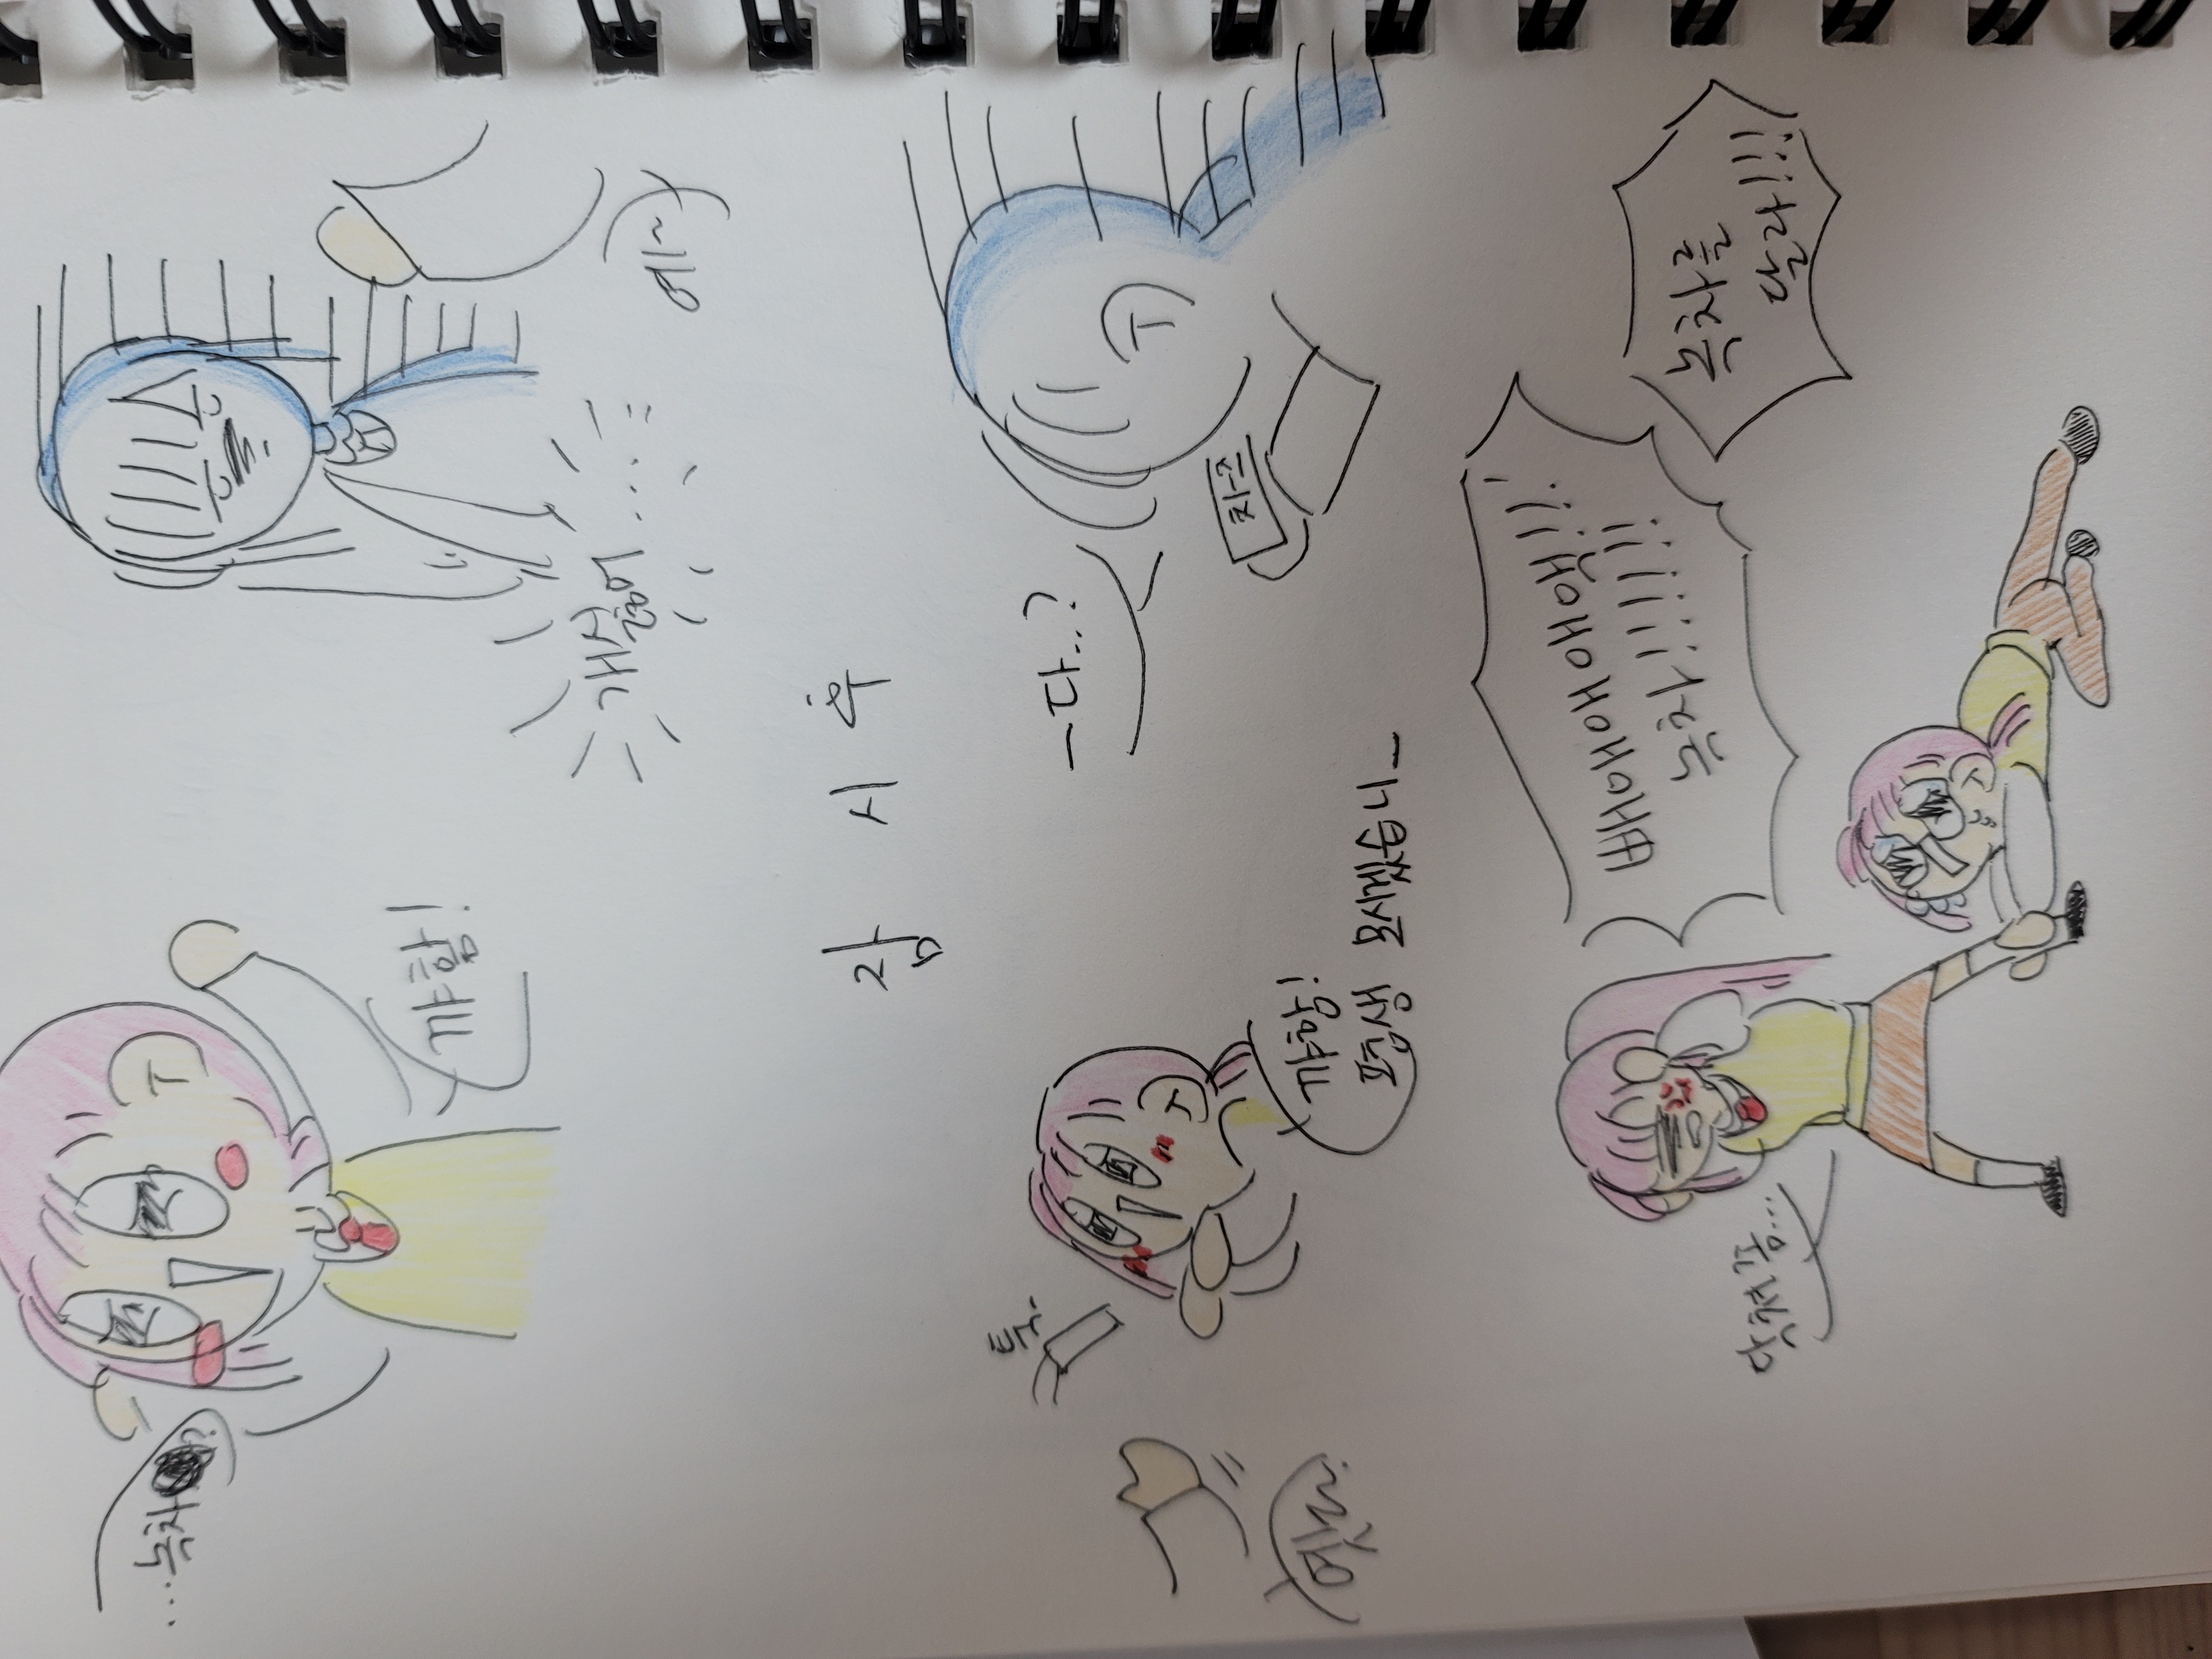 ...녹차?
꺄항!
개싫어...
예~
잠시후
툭-
옛다!
꺄항!
평생 모시겠습니-
-다..?
치즈
빼애애애액!!!
녹차!!!!!!
녹차를
달라!!!
닥쳐 쫌...